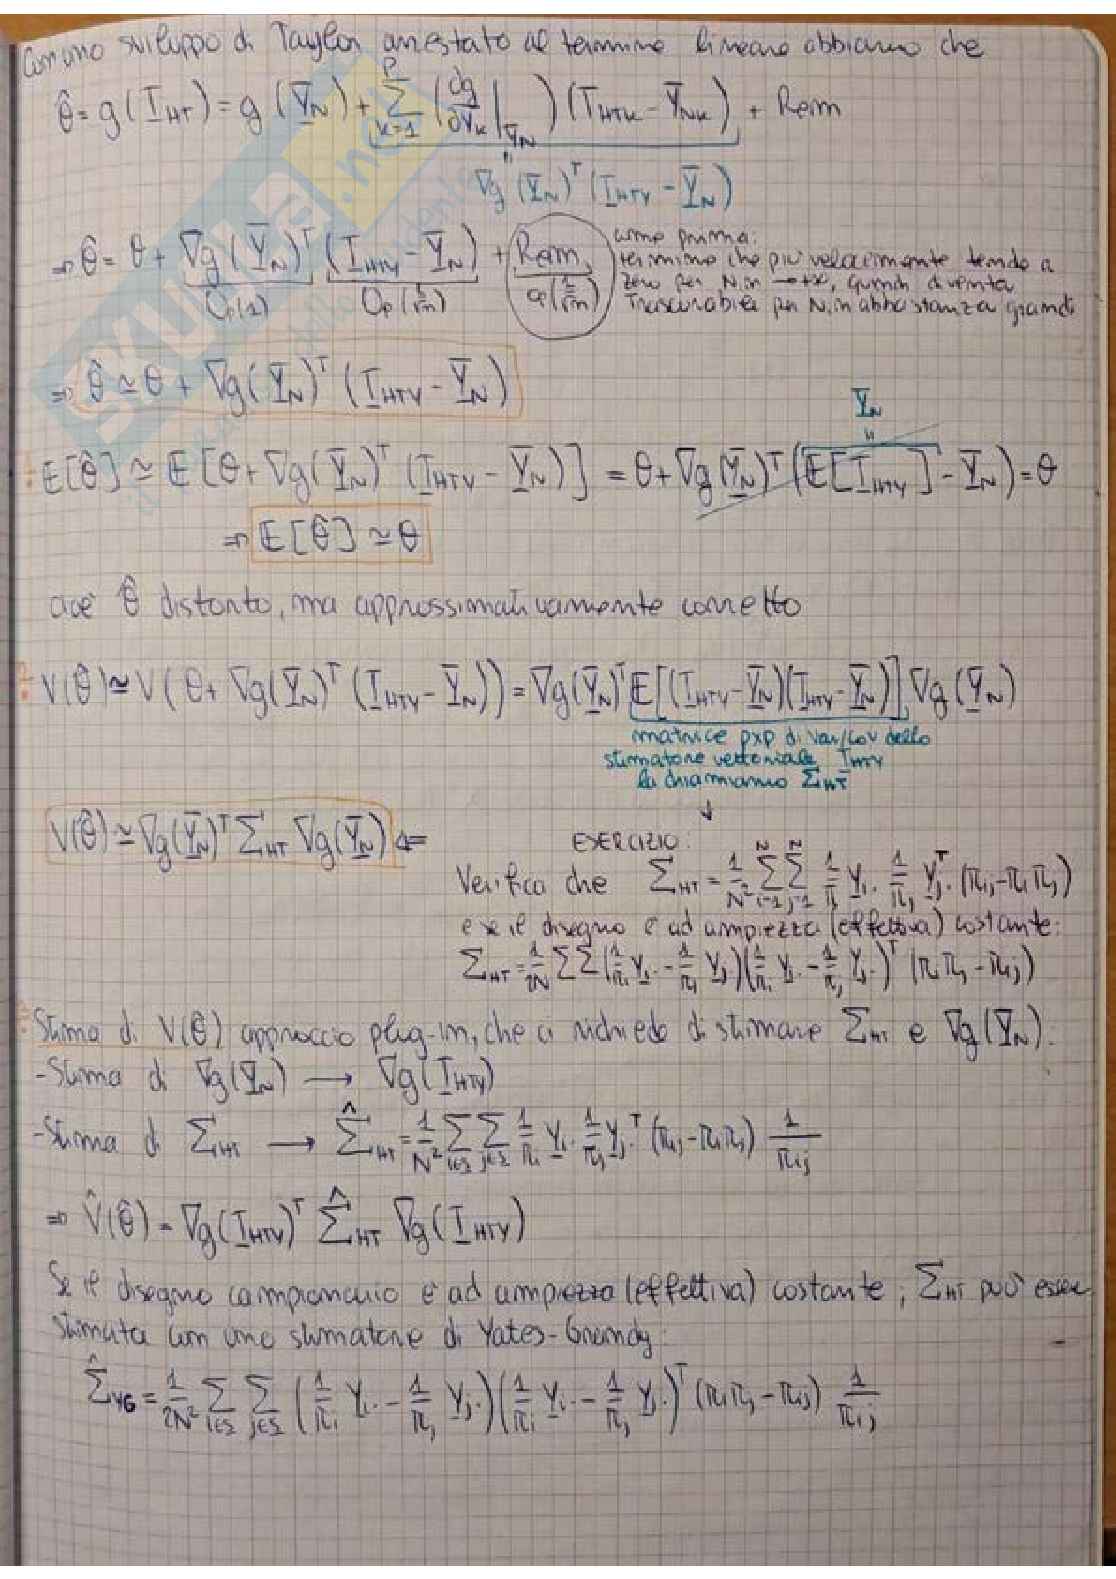 Con uno sviluppo di Taylor arrestato al termine lineare abbiamo che
θ̂ = g(T_HT) = g(Ȳ_N) + Σ_{k=1}^{p} (∂g/∂Y_k |_{Ȳ_N}) (T_HTK - Ȳ_NK) + Rem
"
∇g(Ȳ_N)^T (T_HTY - Ȳ_N)
⇒ θ̂ = θ + ∇g(Ȳ_N)^T (T_HTY - Ȳ_N) + Rem
O_p(1) O_p(1/√n) o_p(1/√n)
come prima:
termine che più velocemente tende a
zero per N,n → +∞, quindi diventa
trascurabile per N,n abbastanza grandi
⇒ θ̂ ≃ θ + ∇g(Ȳ_N)^T (T_HTY - Ȳ_N)
Ȳ_N
"
E[θ̂] ≃ E[θ + ∇g(Ȳ_N)^T (T_HTY - Ȳ_N)] = θ + ∇g(Ȳ_N)^T (E[T_HTY] - Ȳ_N) = θ
⇒ E[θ̂] ≃ θ
cioè θ̂ distorto, ma approssimativamente corretto
V(θ̂) ≃ V(θ + ∇g(Ȳ_N)^T (T_HTY - Ȳ_N)) = ∇g(Ȳ_N)^T E[(T_HTY - Ȳ_N)(T_HTY - Ȳ_N)] ∇g(Ȳ_N)
matrice pxp di var/cov dello
stimatore vettoriale T_HTY
la chiamiamo Σ_HT
↓
V(θ̂) ≃ ∇g(Ȳ_N)^T Σ_HT ∇g(Ȳ_N) ⇐
ESERCIZIO:
Verifica che Σ_HT = 1/N² Σ_{i=1}^{N} Σ_{j=1}^{N} 1/π_i Y_i. 1/π_j Y_j.^T (π_ij - π_i π_j)
e se il disegno è ad ampiezza (effettiva) costante:
Σ_HT = 1/2N ΣΣ (1/π_i Y_i. - 1/π_j Y_j.)(1/π_i Y_i. - 1/π_j Y_j.)^T (π_i π_j - π_ij)
Stima di V(θ̂) approccio plug-in, che ci richiede di stimare Σ_HT e ∇g(Ȳ_N):
- Stima di ∇g(Ȳ_N) → ∇g(T_HTY)
- Stima di Σ_HT → Σ̂_HT = 1/N² Σ_{i∈S} Σ_{j∈S} 1/π_i Y_i. 1/π_j Y_j.^T (π_ij - π_i π_j) 1/π_ij
⇒ V̂(θ̂) = ∇g(T_HTY)^T Σ̂_HT ∇g(T_HTY)
Se il disegno campionario è ad ampiezza (effettiva) costante, Σ_HT può esser
stimata con uno stimatore di Yates-Grundy:
Σ̂_YG = 1/2N² Σ_{i∈S} Σ_{j∈S} (1/π_i Y_i. - 1/π_j Y_j.)(1/π_i Y_i. - 1/π_j Y_j.)^T (π_i π_j - π_ij) 1/π_ij
SKUOLA.net